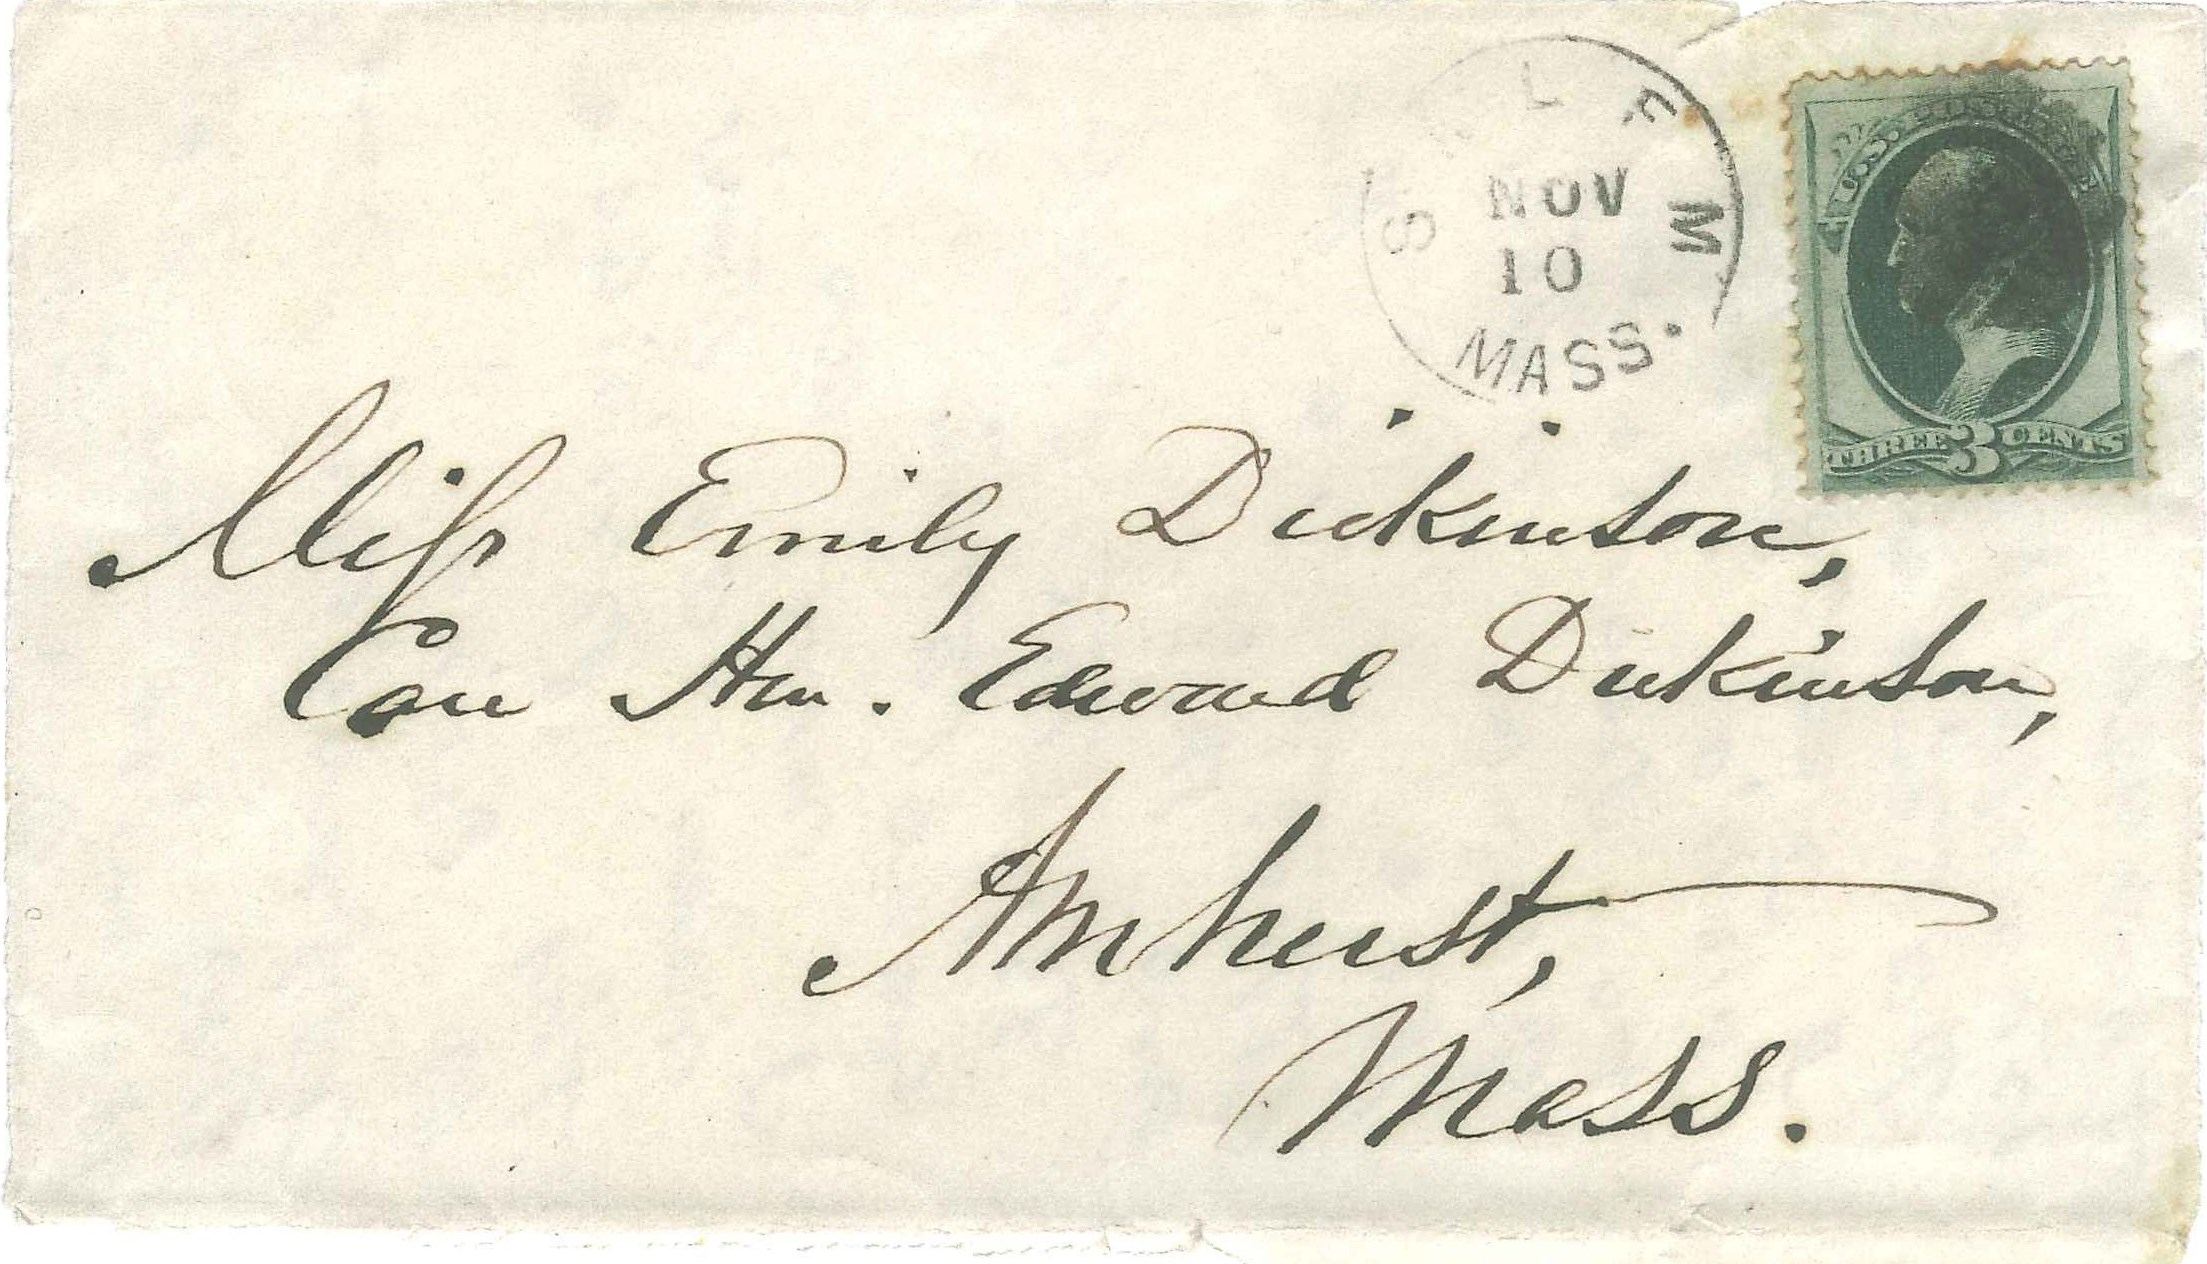 SALEM
NOV
10
MASS.
U.S. POSTAGE
THREE 3 CENTS
Miss Emily Dickinson,
Care Hon. Edward Dickinson,
Amherst,
Mass.